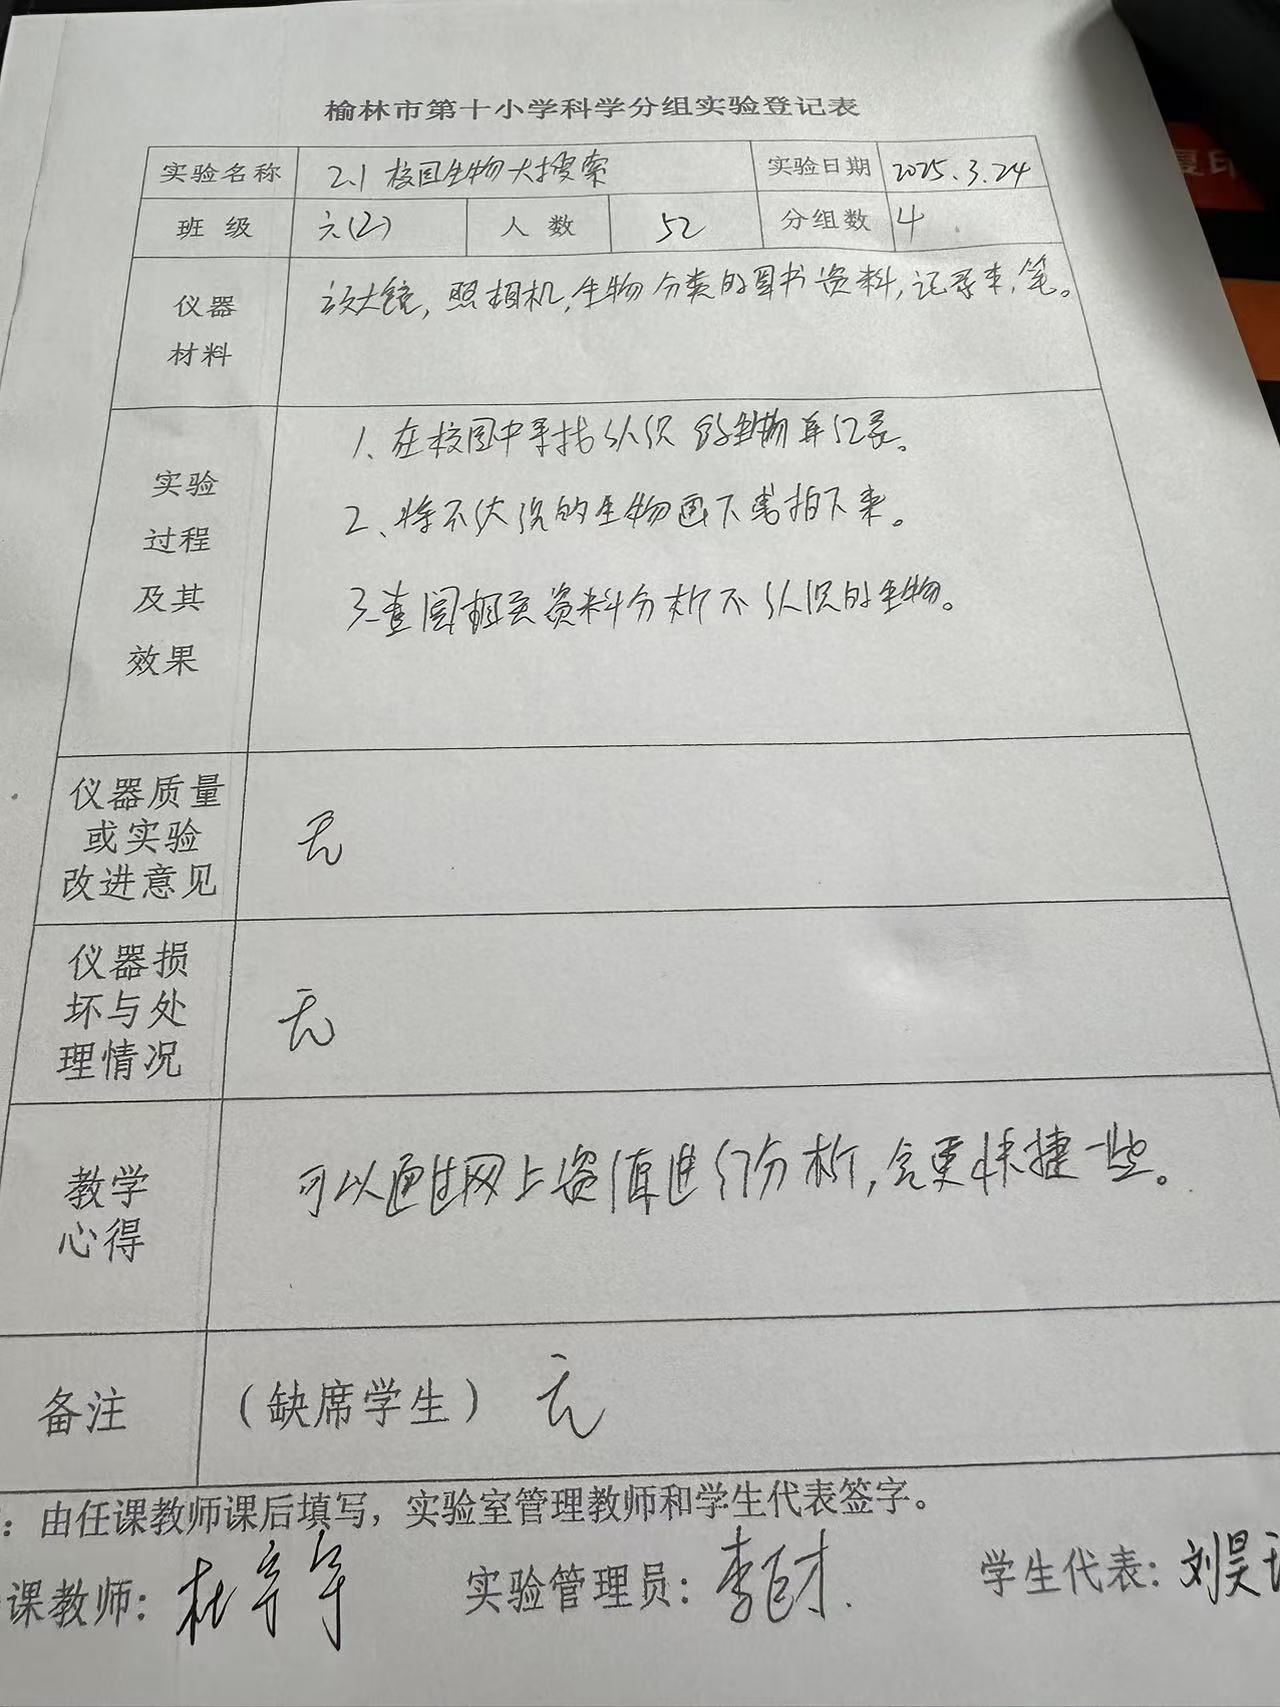 榆林市第十小学科学分组实验登记表
实验名称 2.1 校园生物大搜索 实验日期 2025.3.24
班级 六(2) 人数 52 分组数 4
仪器材料 放大镜,照相机,生物分类的图书资料,记录表,笔。
实验过程及其效果
1、在校园中寻找认识的生物并记录。
2、将不认识的生物画下或拍下来。
3.查阅相关资料分析不认识的生物。
仪器质量或实验改进意见 无
仪器损坏与处理情况 无
教学心得 可以通过网上资源进行分析,会更快捷一些。
备注 (缺席学生) 无
:由任课教师课后填写,实验室管理教师和学生代表签字。
课教师: 杜 实验管理员: 李 学生代表: 刘昊